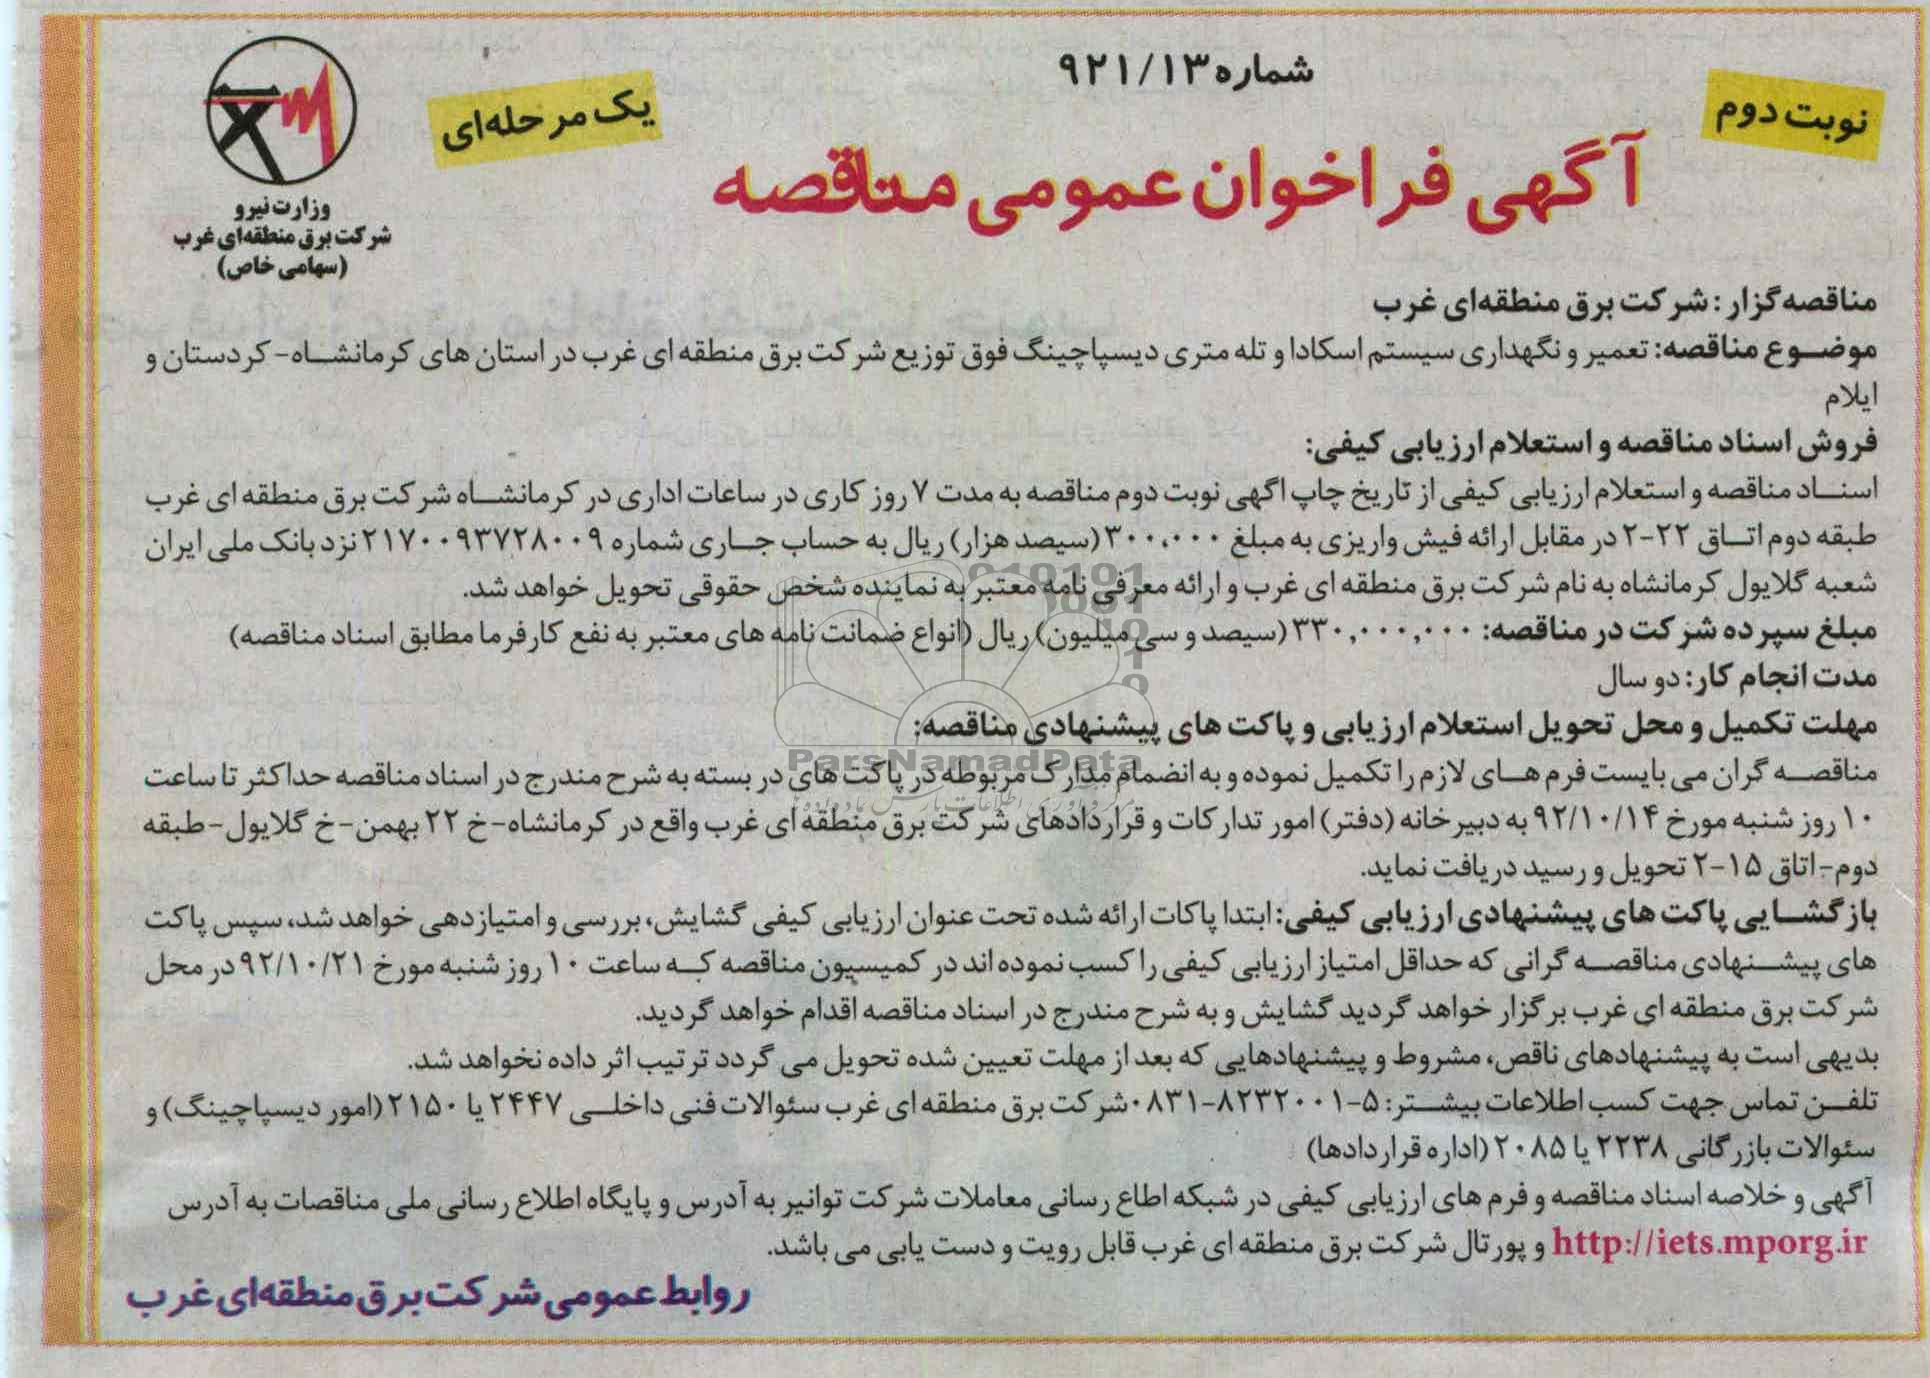 شماره ۹۲۱/۱۳
نوبت دوم
یک مرحله‌ای
آگهی فراخوان عمومی مناقصه
وزارت نیرو
شرکت برق منطقه‌ای غرب
(سهامی خاص)
مناقصه گزار : شرکت برق منطقه‌ای غرب
موضوع مناقصه: تعمیر و نگهداری سیستم اسکادا و تله متری دیسپاچینگ فوق توزیع شرکت برق منطقه ای غرب در استان های کرمانشاه- کردستان و
ایلام
فروش اسناد مناقصه و استعلام ارزیابی کیفی:
اسناد مناقصه و استعلام ارزیابی کیفی از تاریخ چاپ آگهی نوبت دوم مناقصه به مدت ۷ روز کاری در ساعات اداری در کرمانشاه شرکت برق منطقه ای غرب
طبقه دوم اتاق ۲۲-۲ در مقابل ارائه فیش واریزی به مبلغ ۳۰۰،۰۰۰ (سیصد هزار) ریال به حساب جاری شماره ۲۱۷۰۰۹۳۷۲۸۰۰۹ نزد بانک ملی ایران
شعبه گلایول کرمانشاه به نام شرکت برق منطقه ای غرب و ارائه معرفی نامه معتبر به نماینده شخص حقوقی تحویل خواهد شد.
مبلغ سپرده شرکت در مناقصه: ۳۳۰,۰۰۰,۰۰۰ (سیصد و سی میلیون) ریال (انواع ضمانت نامه های معتبر به نفع کارفرما مطابق اسناد مناقصه)
مدت انجام کار: دو سال
مهلت تکمیل و محل تحویل استعلام ارزیابی و پاکت های پیشنهادی مناقصه:
مناقصه گران می بایست فرم های لازم را تکمیل نموده و به انضمام مدارک مربوطه در پاکت های در بسته به شرح مندرج در اسناد مناقصه حداکثر تا ساعت
۱۰ روز شنبه مورخ ۹۲/۱۰/۱۴ به دبیرخانه (دفتر) امور تدارکات و قراردادهای شرکت برق منطقه ای غرب واقع در کرمانشاه-خ ۲۲ بهمن-خ گلایول-طبقه
دوم-اتاق ۱۵-۲ تحویل و رسید دریافت نماید.
بازگشایی پاکت های پیشنهادی ارزیابی کیفی: ابتدا پاکات ارائه شده تحت عنوان ارزیابی کیفی گشایش، بررسی و امتیازدهی خواهد شد، سپس پاکت
های پیشنهادی مناقصه گرانی که حداقل امتیاز ارزیابی کیفی را کسب نموده اند در کمیسیون مناقصه که ساعت ۱۰ روز شنبه مورخ ۹۲/۱۰/۲۱ در محل
شرکت برق منطقه ای غرب برگزار خواهد گردید گشایش و به شرح مندرج در اسناد مناقصه اقدام خواهد گردید.
بدیهی است به پیشنهادهای ناقص، مشروط و پیشنهادهایی که بعد از مهلت تعیین شده تحویل می گردد ترتیب اثر داده نخواهد شد.
تلفن تماس جهت کسب اطلاعات بیشتر: ۵-۸۲۳۲۰۰۱-۰۸۳۱ شرکت برق منطقه ای غرب سئوالات فنی داخلی ۲۴۴۷ یا ۲۱۵۰ (امور دیسپاچینگ) و
سئوالات بازرگانی ۲۲۳۸ یا ۲۰۸۵ (اداره قراردادها)
آگهی و خلاصه اسناد مناقصه و فرم های ارزیابی کیفی در شبکه اطاع رسانی معاملات شرکت توانیر به آدرس و پایگاه اطلاع رسانی ملی مناقصات به آدرس
http://iets.mporg.ir و پورتال شرکت برق منطقه ای غرب قابل رویت و دست یابی می باشد.
روابط عمومی شرکت برق منطقه‌ای غرب
ParsNamadData